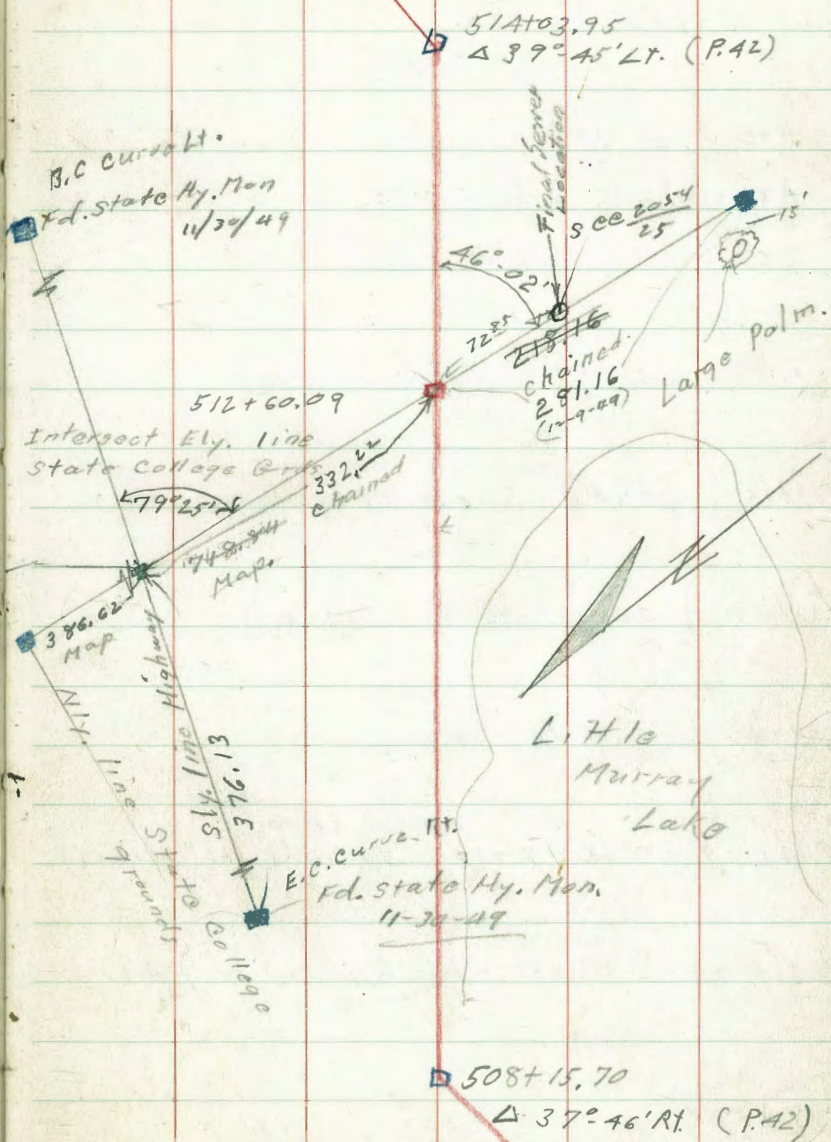 514+03.95
Δ 39°-45' Lt. (P.42)
B.C Curve Lt.
Fd. State Hy. Mon
11/30/49
Final Sewer
Location
See 2054
25
15'
46°-02'
72.85
218.16
chained.
281.16
(12-9-49)
Large Palm.
512+60.09
Intersect Ely. line
State College Grds
332.22
chained
79°25'
748.84
Map.
386.62
Map
Sly. line Highway
376.13
Nly. line State College
grounds
Little
Murray
Lake
E.C. Curve Rt.
Fd. State Hy. Mon.
11-30-49
508+15.70
Δ 37°-46' Rt. (P.42)